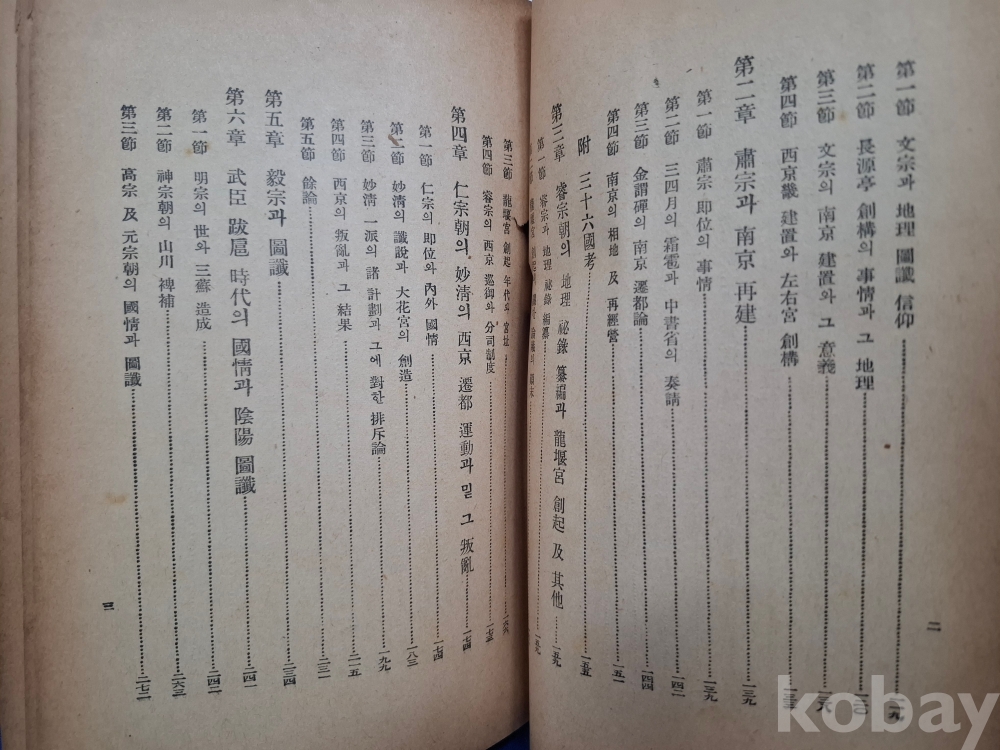 第一節 文宗과 地理 圖讖 信仰
第二節 長源亭 創構의 事情과 그 地理
第三節 文宗의 南京 建置와 그 意義
第四節 西京畿 建置와 左右宮 創構
第二章 肅宗과 南京 再建 一三九
第一節 肅宗 即位의 事情 一三九
第二節 三四月의 霜雹과 中書省의 奏請 一四二
第三節 金謂磾의 南京 遷都論 一四四
第四節 南京의 相地 及 再經營 一五一
附 三十六國考 一五五
第三章 睿宗朝의 地理 祕錄 纂編과 龍堰宮 創起 及 其他 一五九
第一節 睿宗과 地理 祕錄 編纂 一五九
第三節 龍堰宮 創起 年代와 宮址
第四節 睿宗의 西京 巡御와 分司制度
第四章 仁宗朝의 妙淸의 西京 遷都 運動과 밑 그 叛亂 一七四
第一節 仁宗의 即位와 內外 國情 一七四
第二節 妙淸의 讖說과 大花宮의 創造 一八三
第三節 妙淸 一派의 諸計劃과 그에 對한 排斥論 一九九
第四節 西京의 叛亂과 그 結果 二一五
第五節 餘論 二三一
第五章 毅宗과 圖讖 二三四
第六章 武臣 跋扈 時代의 國情과 陰陽 圖讖 二四二
第一節 明宗의 世와 三蘇 造成 二四二
第二節 神宗朝의 山川 裨補 二六三
第三節 高宗 及 元宗朝의 國情과 圖讖 二七二
二
三
kobay